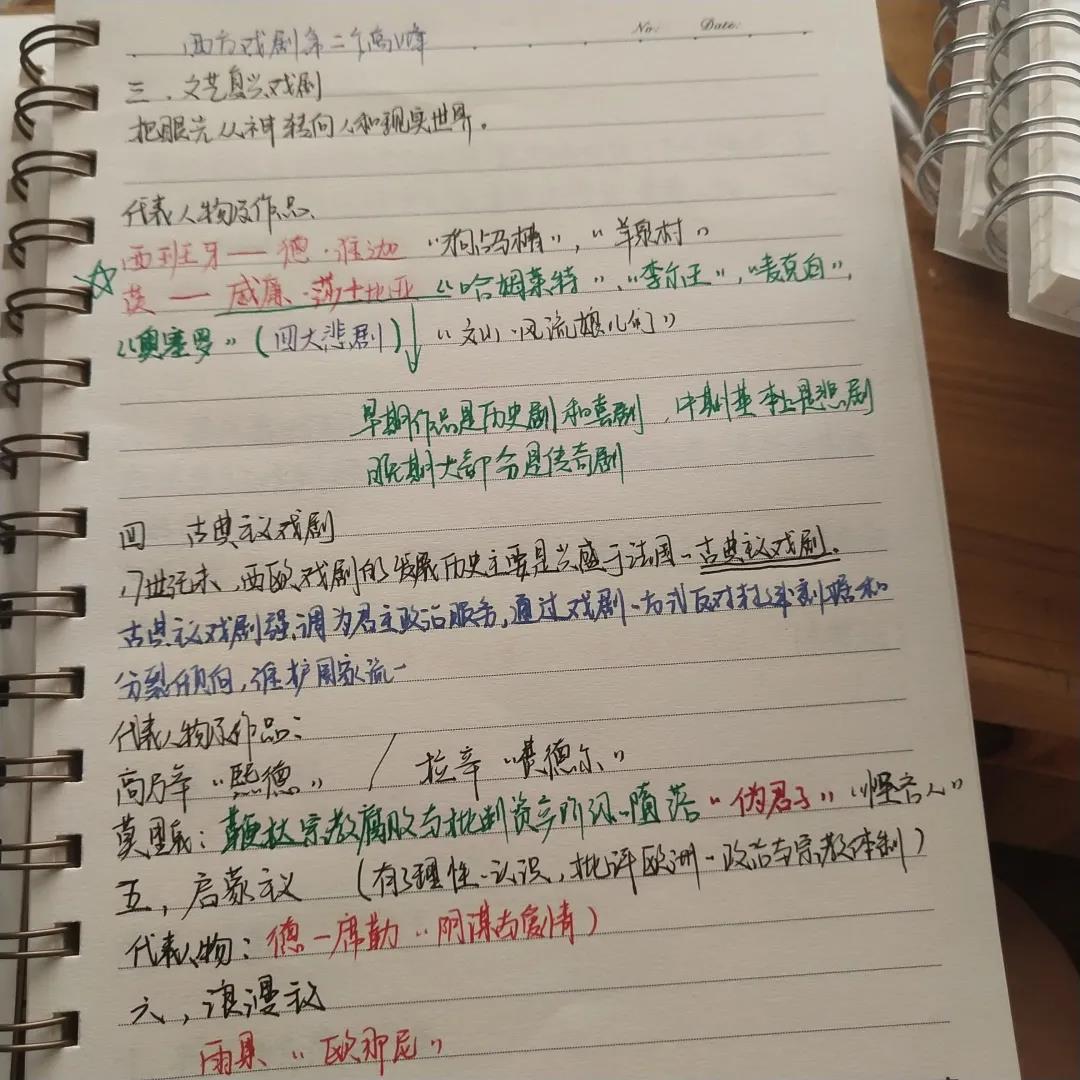 西方戏剧第二个高峰
No: Date:
三、文艺复兴戏剧
把眼光从神转向人和现实世界。
代表人物及作品、
西班牙—德·维迦 "狗占马槽", "羊泉村"
英—威廉·莎士比亚 "哈姆莱特"、"李尔王","麦克白",
"奥塞罗"(四大悲剧) "文》·风流娘儿们"
早期作品是历史剧和喜剧,中期基本上是悲剧
晚期大部分是传奇剧
四 古典主义戏剧
17世纪末、西欧戏剧的发展历史主要是兴盛于法国-古典主义戏剧.
古典主义戏剧强调为君主政治服务,通过戏剧-方式反对封建割据和
分裂倾向,维护国家统一
代表人物及作品:
高乃依 "熙德" / 拉辛 "费德尔"
莫里哀:鞭挞宗教腐败与批判资产阶级-堕落 "伪君子" "悭吝人"
五,启蒙主义 (有了理性-认识,批评欧洲-政治与宗教体制)
代表人物:德—席勒 "阴谋与爱情)
六,浪漫主义
雨果 "欧那尼"